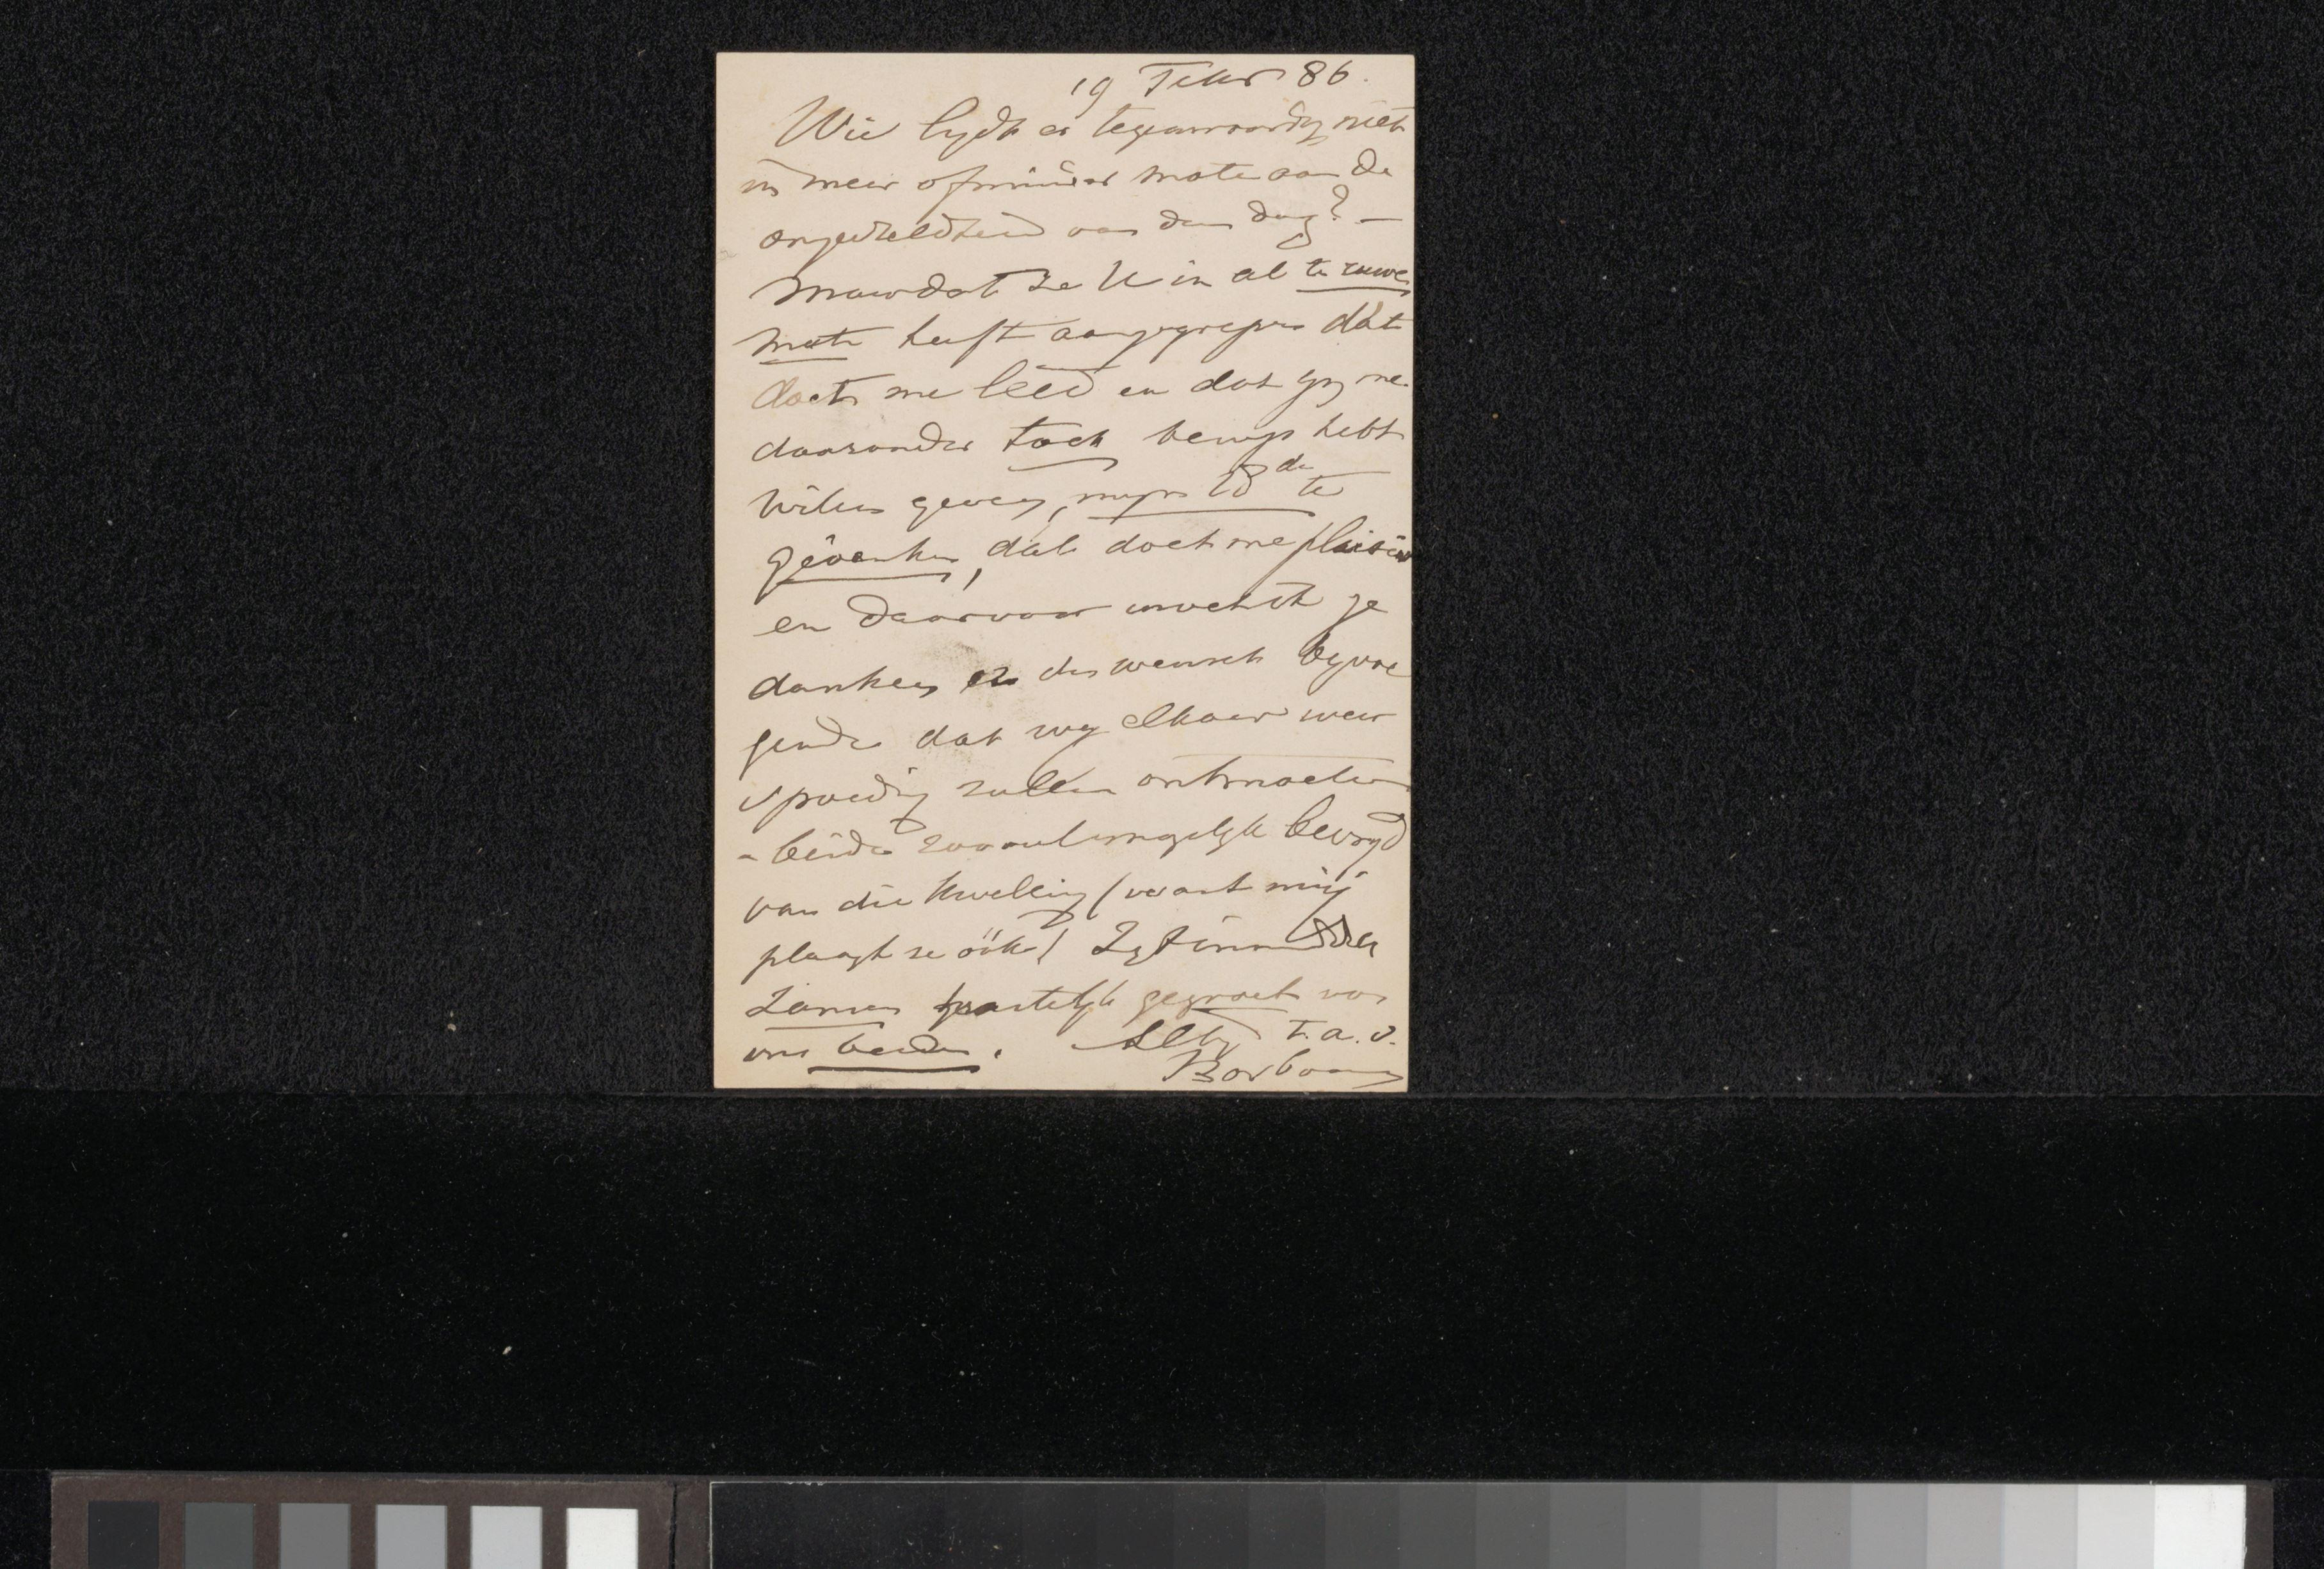 19 Febr 86.
Wie lydt er tegenwoordig niet
in meer of minder mate aan de
ongesteldheid van den dag? —
Maar dat ze U in al te ruwe
mate heeft aangegrepen dat
doet me leed en dat gy me
daaronder toch bewys hebt
willen geven, myn 18de te
gedenken, dat doet me plaisier
en daarvoor mocht ik je
danken en den wensch byvoe
gende dat wy elkaer weer
spoedig zullen ontmoeten
beide zooveel mogelyk bevryd
van die kwelling (want mij
plaagt ze óók! Zyt inmiddels
samen hartelyk gegroet van
ons beiden. Altyd t.a.v.
Bosboom